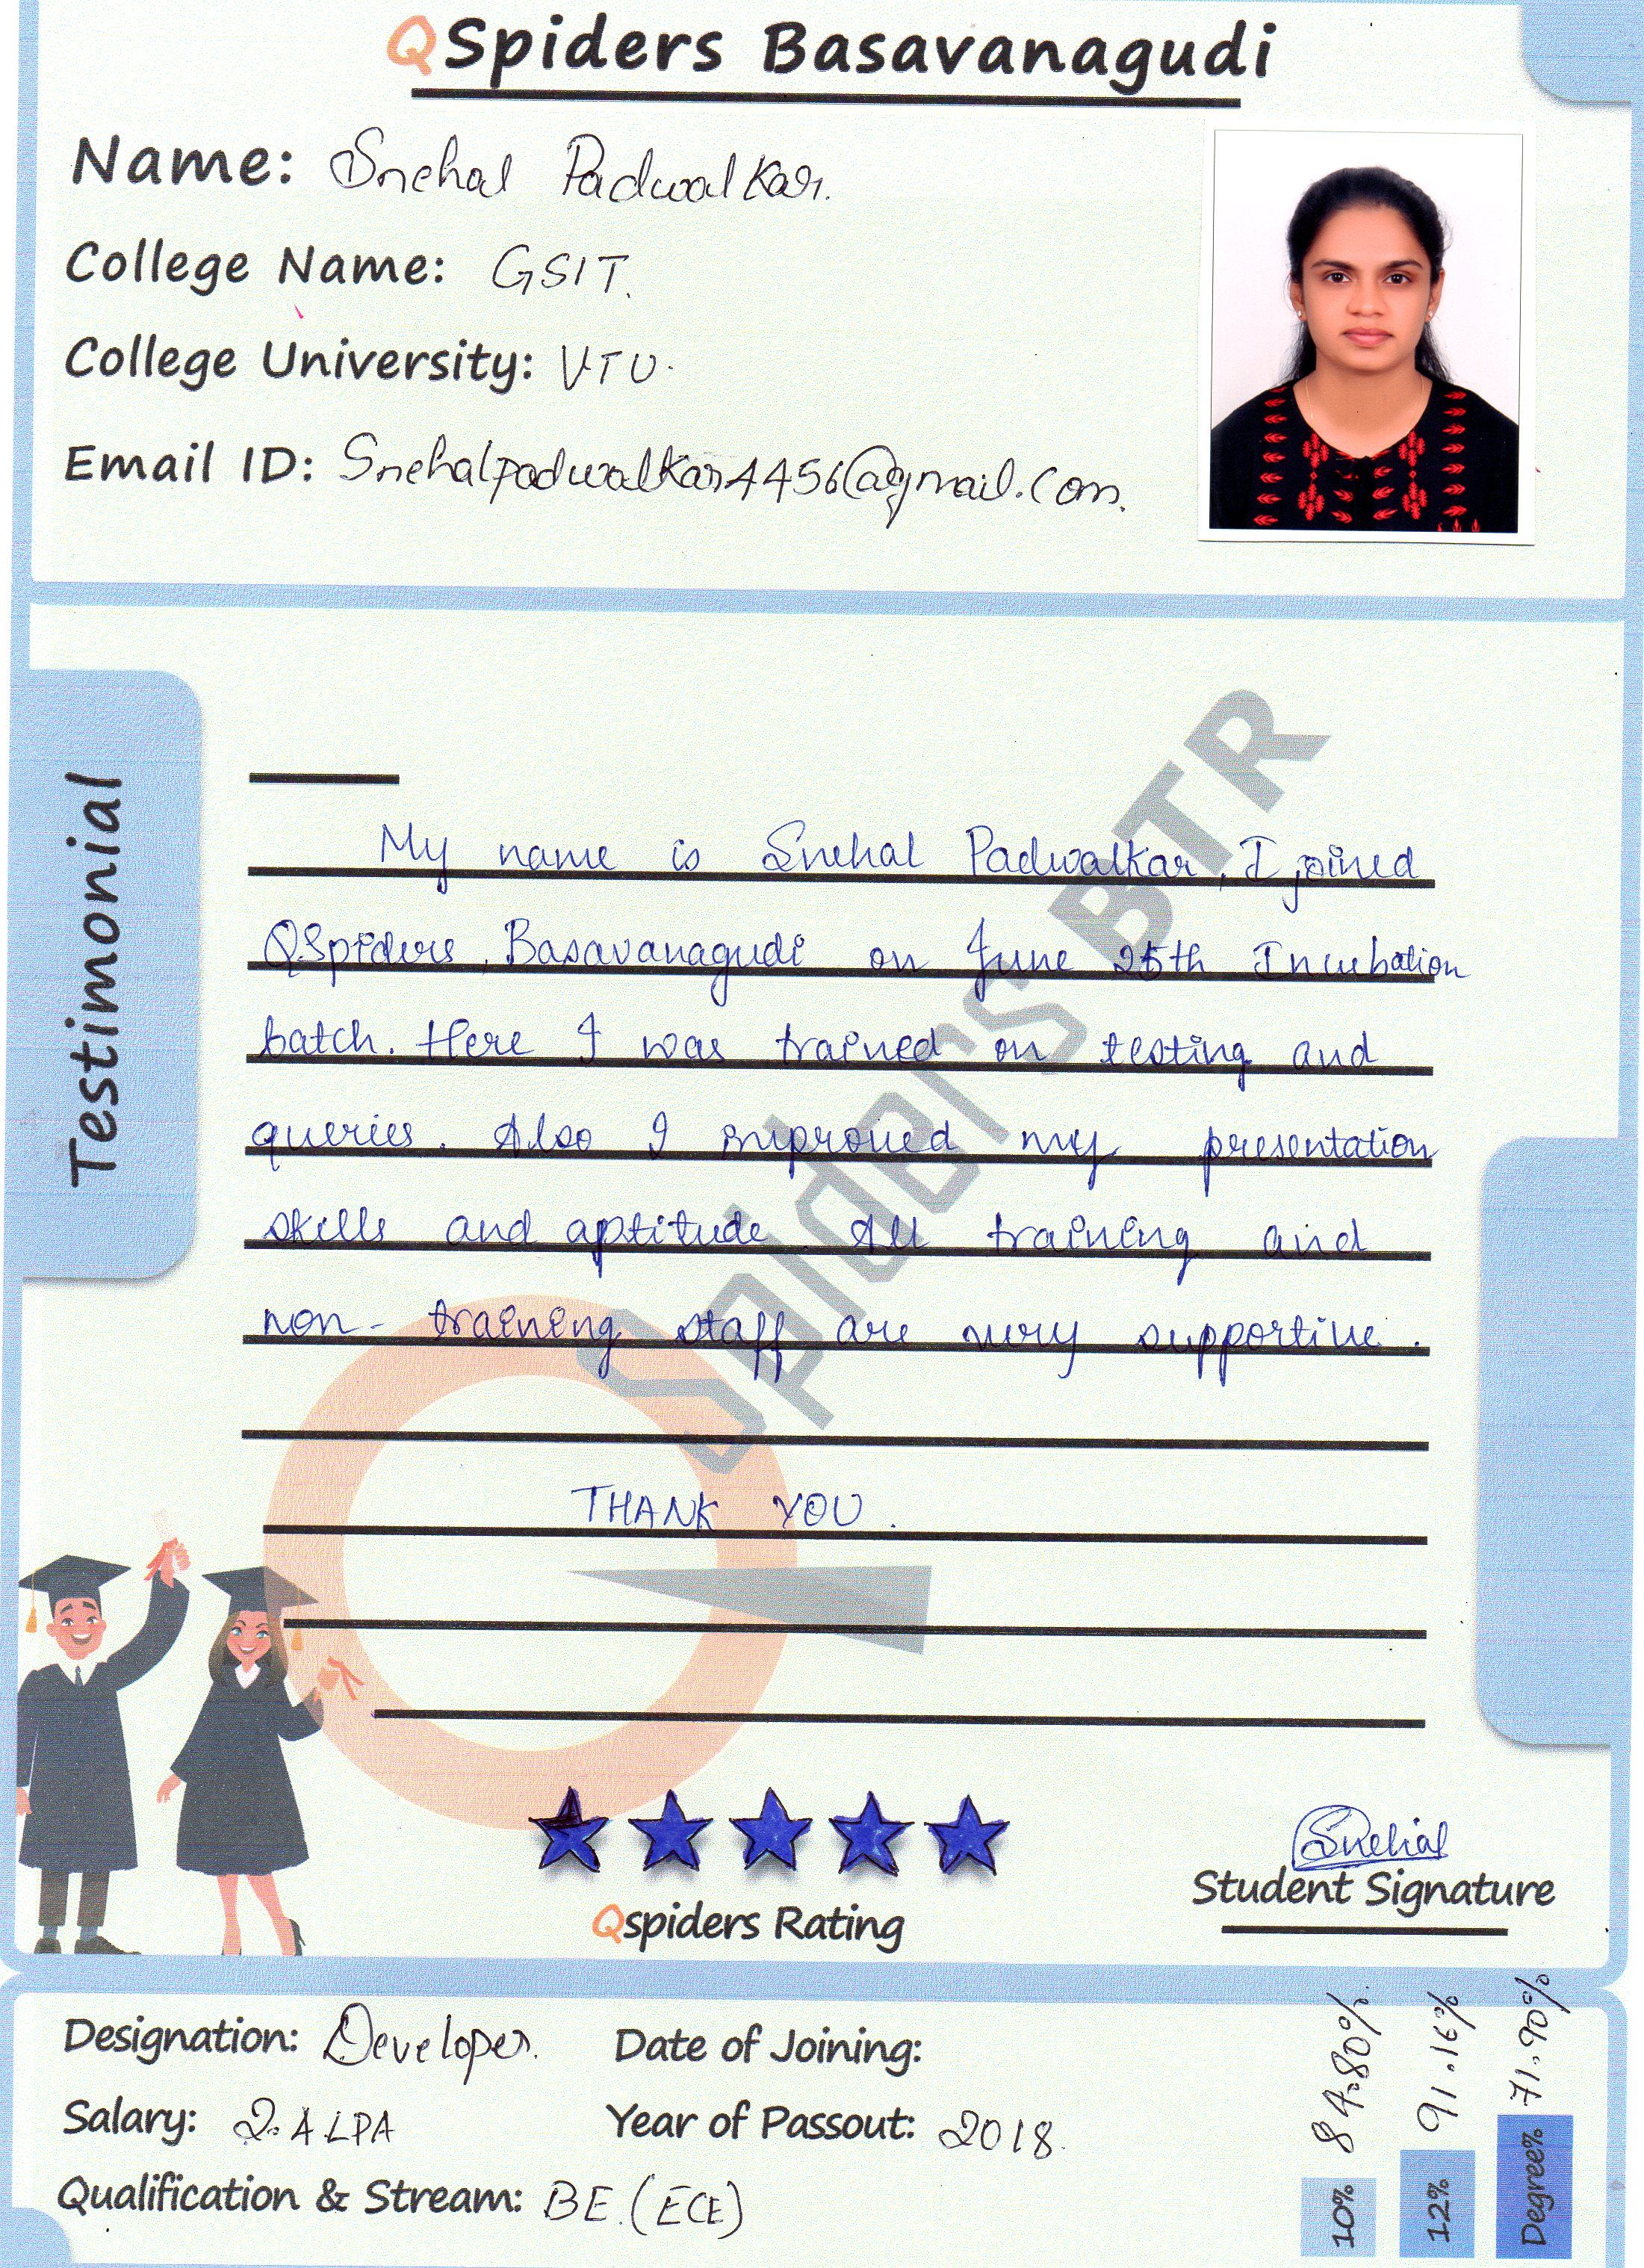 QSpiders Basavanagudi
Name: Snehal Padwalkar.
College Name: GSIT.
College University: VTU.
Email ID: Snehalpadwalkar4456@gmail.com.
Testimonial
My name is Snehal Padwalkar, I joined
QSpiders, Basavanagudi on June 25th Incubation
batch. Here I was trained on testing and
queries. Also I improved my presentation
skills and aptitude. All training and
non-training staff are very supportive.
THANK YOU.
Spiders BTR
Qspiders Rating
Snehal
Student Signature
Designation: Developer.
Date of Joining:
Salary: 2.4 LPA
Year of Passout: 2018.
Qualification & Stream: BE.(ECE)
10% 84.80%.
12% 91.16%
Degree% 71.90%